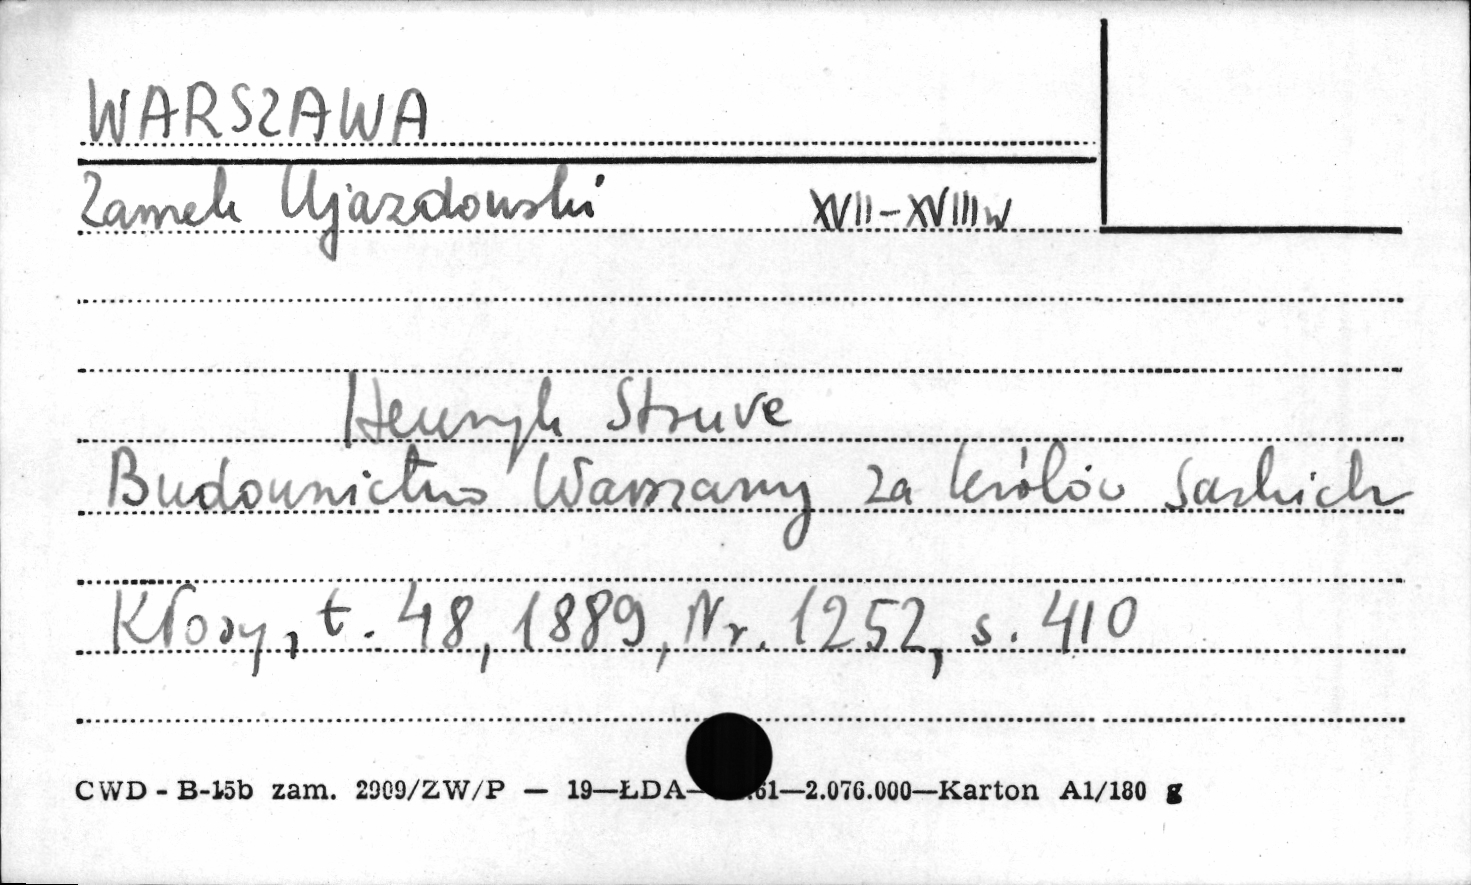 WARSZAWA
Zamek Ujazdowski XVII-XVIII w
Henryk Struve
Budownictwo Warszawy za królów saskich
Kłosy, t. 48, 1889, Nr. 1252, s. 410
CWD - B-15b zam. 2909/ZW/P — 19—ŁDA— 61—2.076.000—Karton A1/180 g